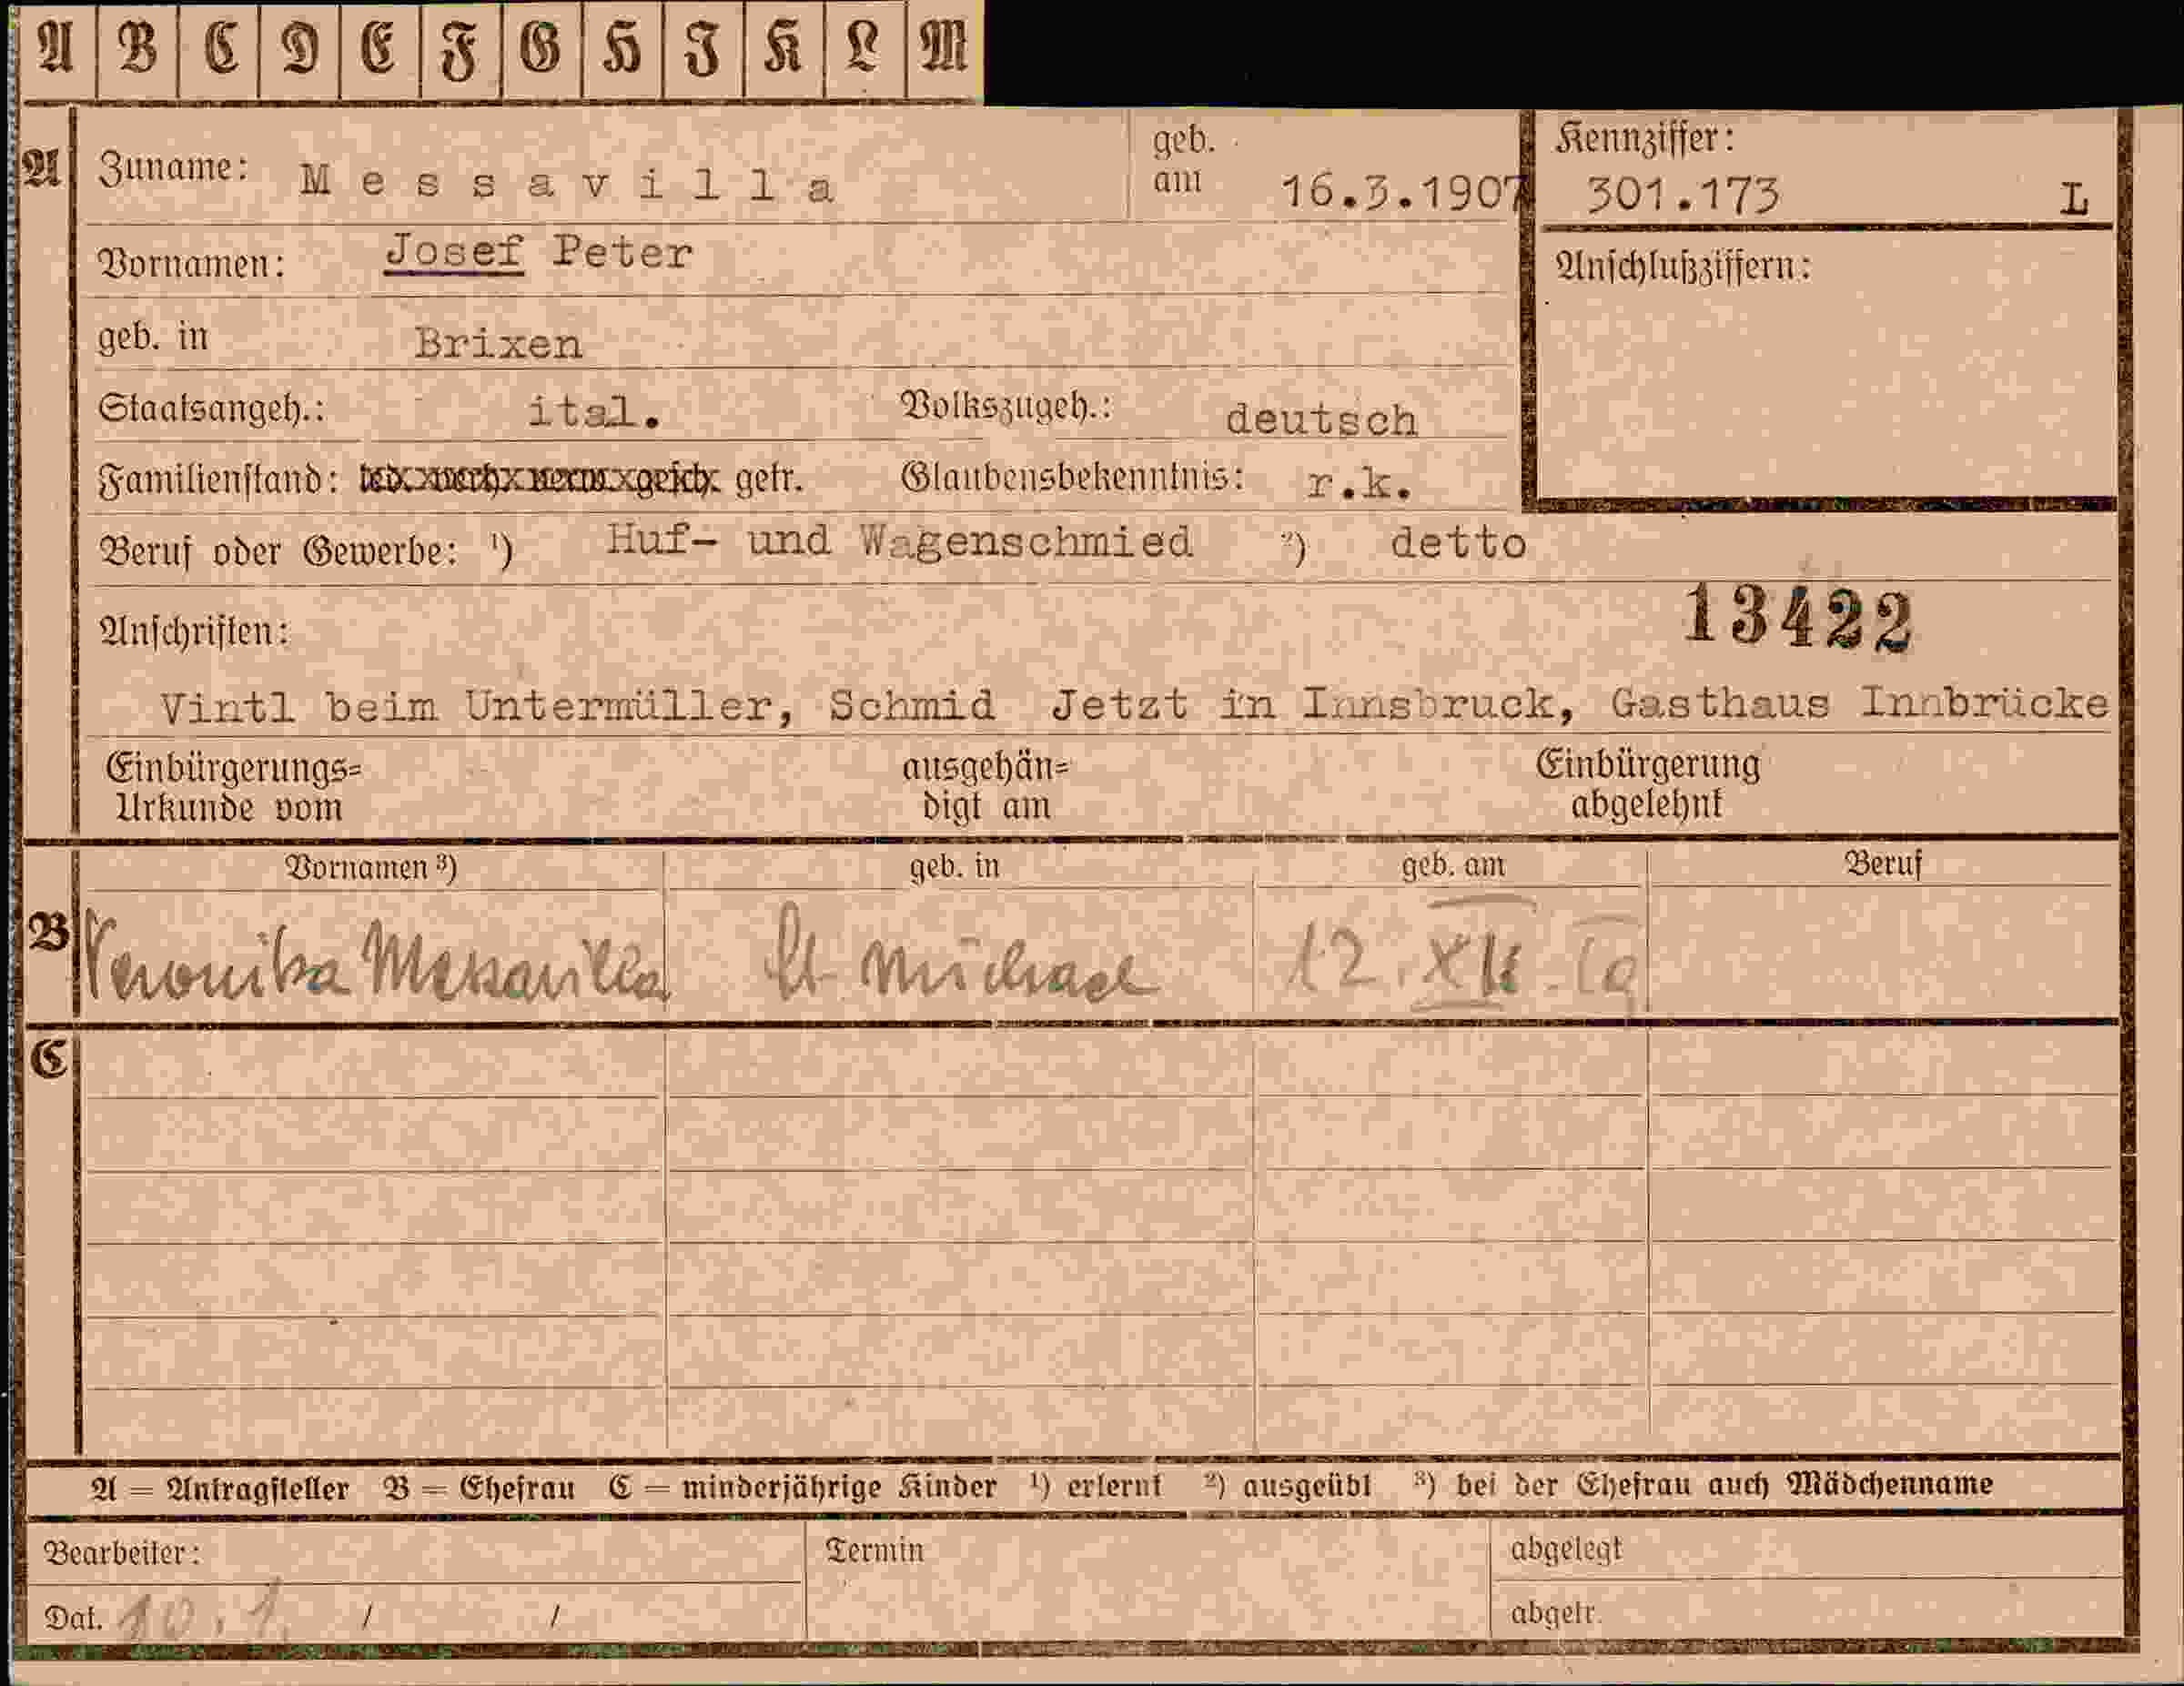 A B C D E F G H I K L M
A Zuname: Messavilla geb. am 16.3.1907 Kennziffer: 301.173 L
Vornamen: Josef Peter Anschlußziffern:
geb. in Brixen
Staatsangeh.: ital. Volkszugeh.: deutsch
Familienstand: getr. Glaubensbekenntnis: r.k.
Beruf oder Gewerbe: ¹) Huf- und Wagenschmied ²) detto
Anschriften: 13422
Vintl beim Untermüller, Schmid Jetzt in Innsbruck, Gasthaus Innbrücke
Einbürgerungs= ausgehän= Einbürgerung
Urkunde vom digt am abgelehnt
Vornamen ³) geb. in geb. am Beruf
B Veronika Messavilla St Michael 12. XII.
C
A = Antragsteller B = Ehefrau C = minderjährige Kinder ¹) erlernt ²) ausgeübt ³) bei der Ehefrau auch Mädchenname
Bearbeiter: Termin abgelegt
Dat. 10.1. / / abgetr.